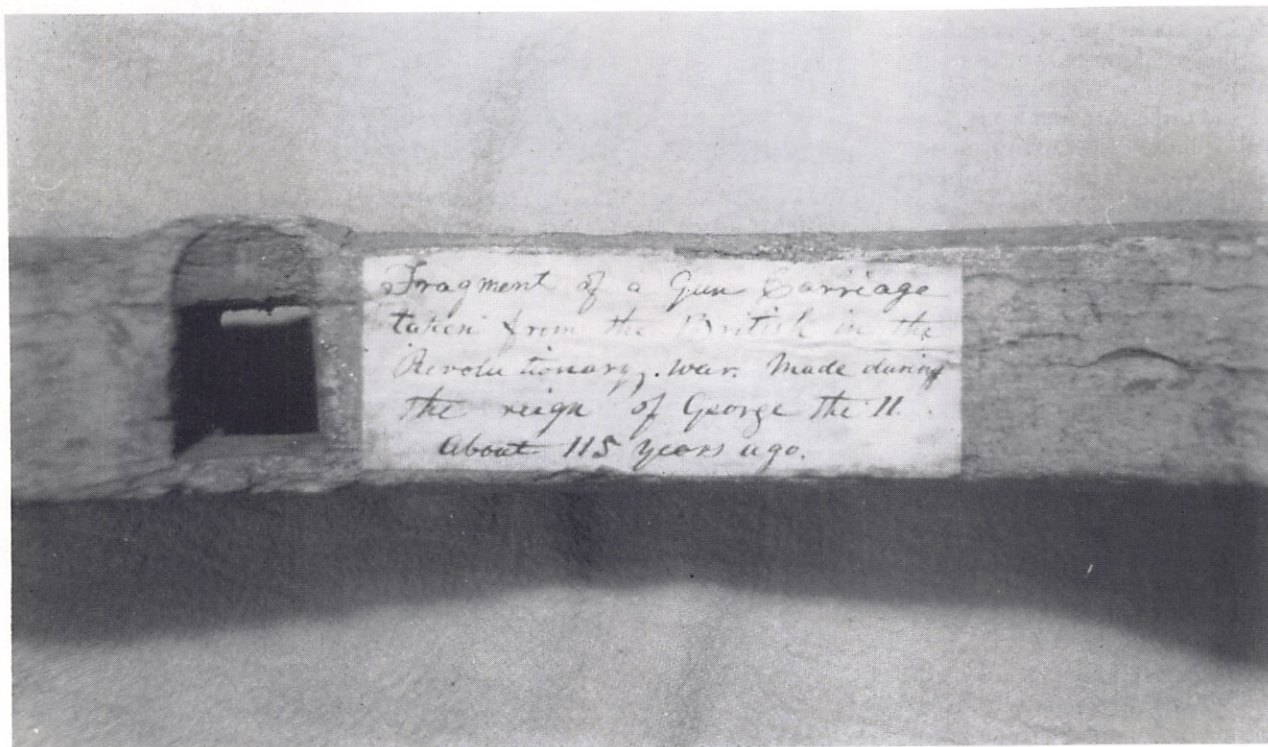 Fragment of a Gun Carriage
taken from the British in the
Revolutionary, war. Made during
the reign of George the II.
About 115 years ago.